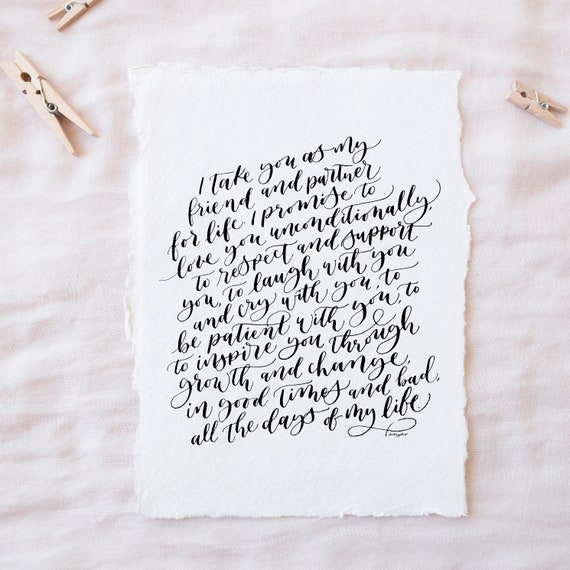 I take you as my
friend and partner
for life. I promise to
love you unconditionally,
to respect and support
you, to laugh with you
and cry with you, to
be patient with you, to
to inspire you through
growth and change,
in good times and bad,
all the days of my life